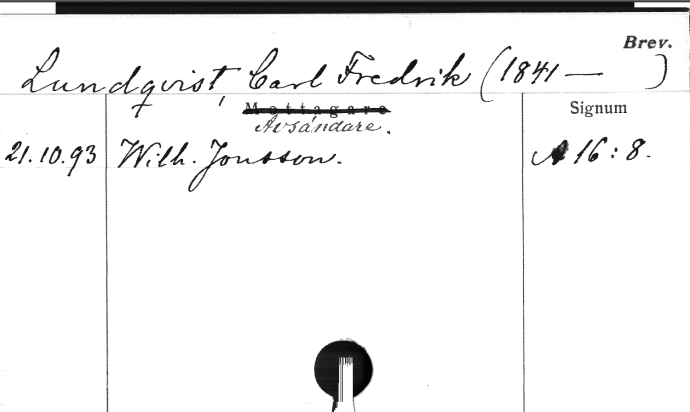 Brev.
Lundqvist, Carl Fredrik (1841 — )
Mottagare
Signum
Avsändare.
21.10.93 Wilh. Jonsson. A 16:8.